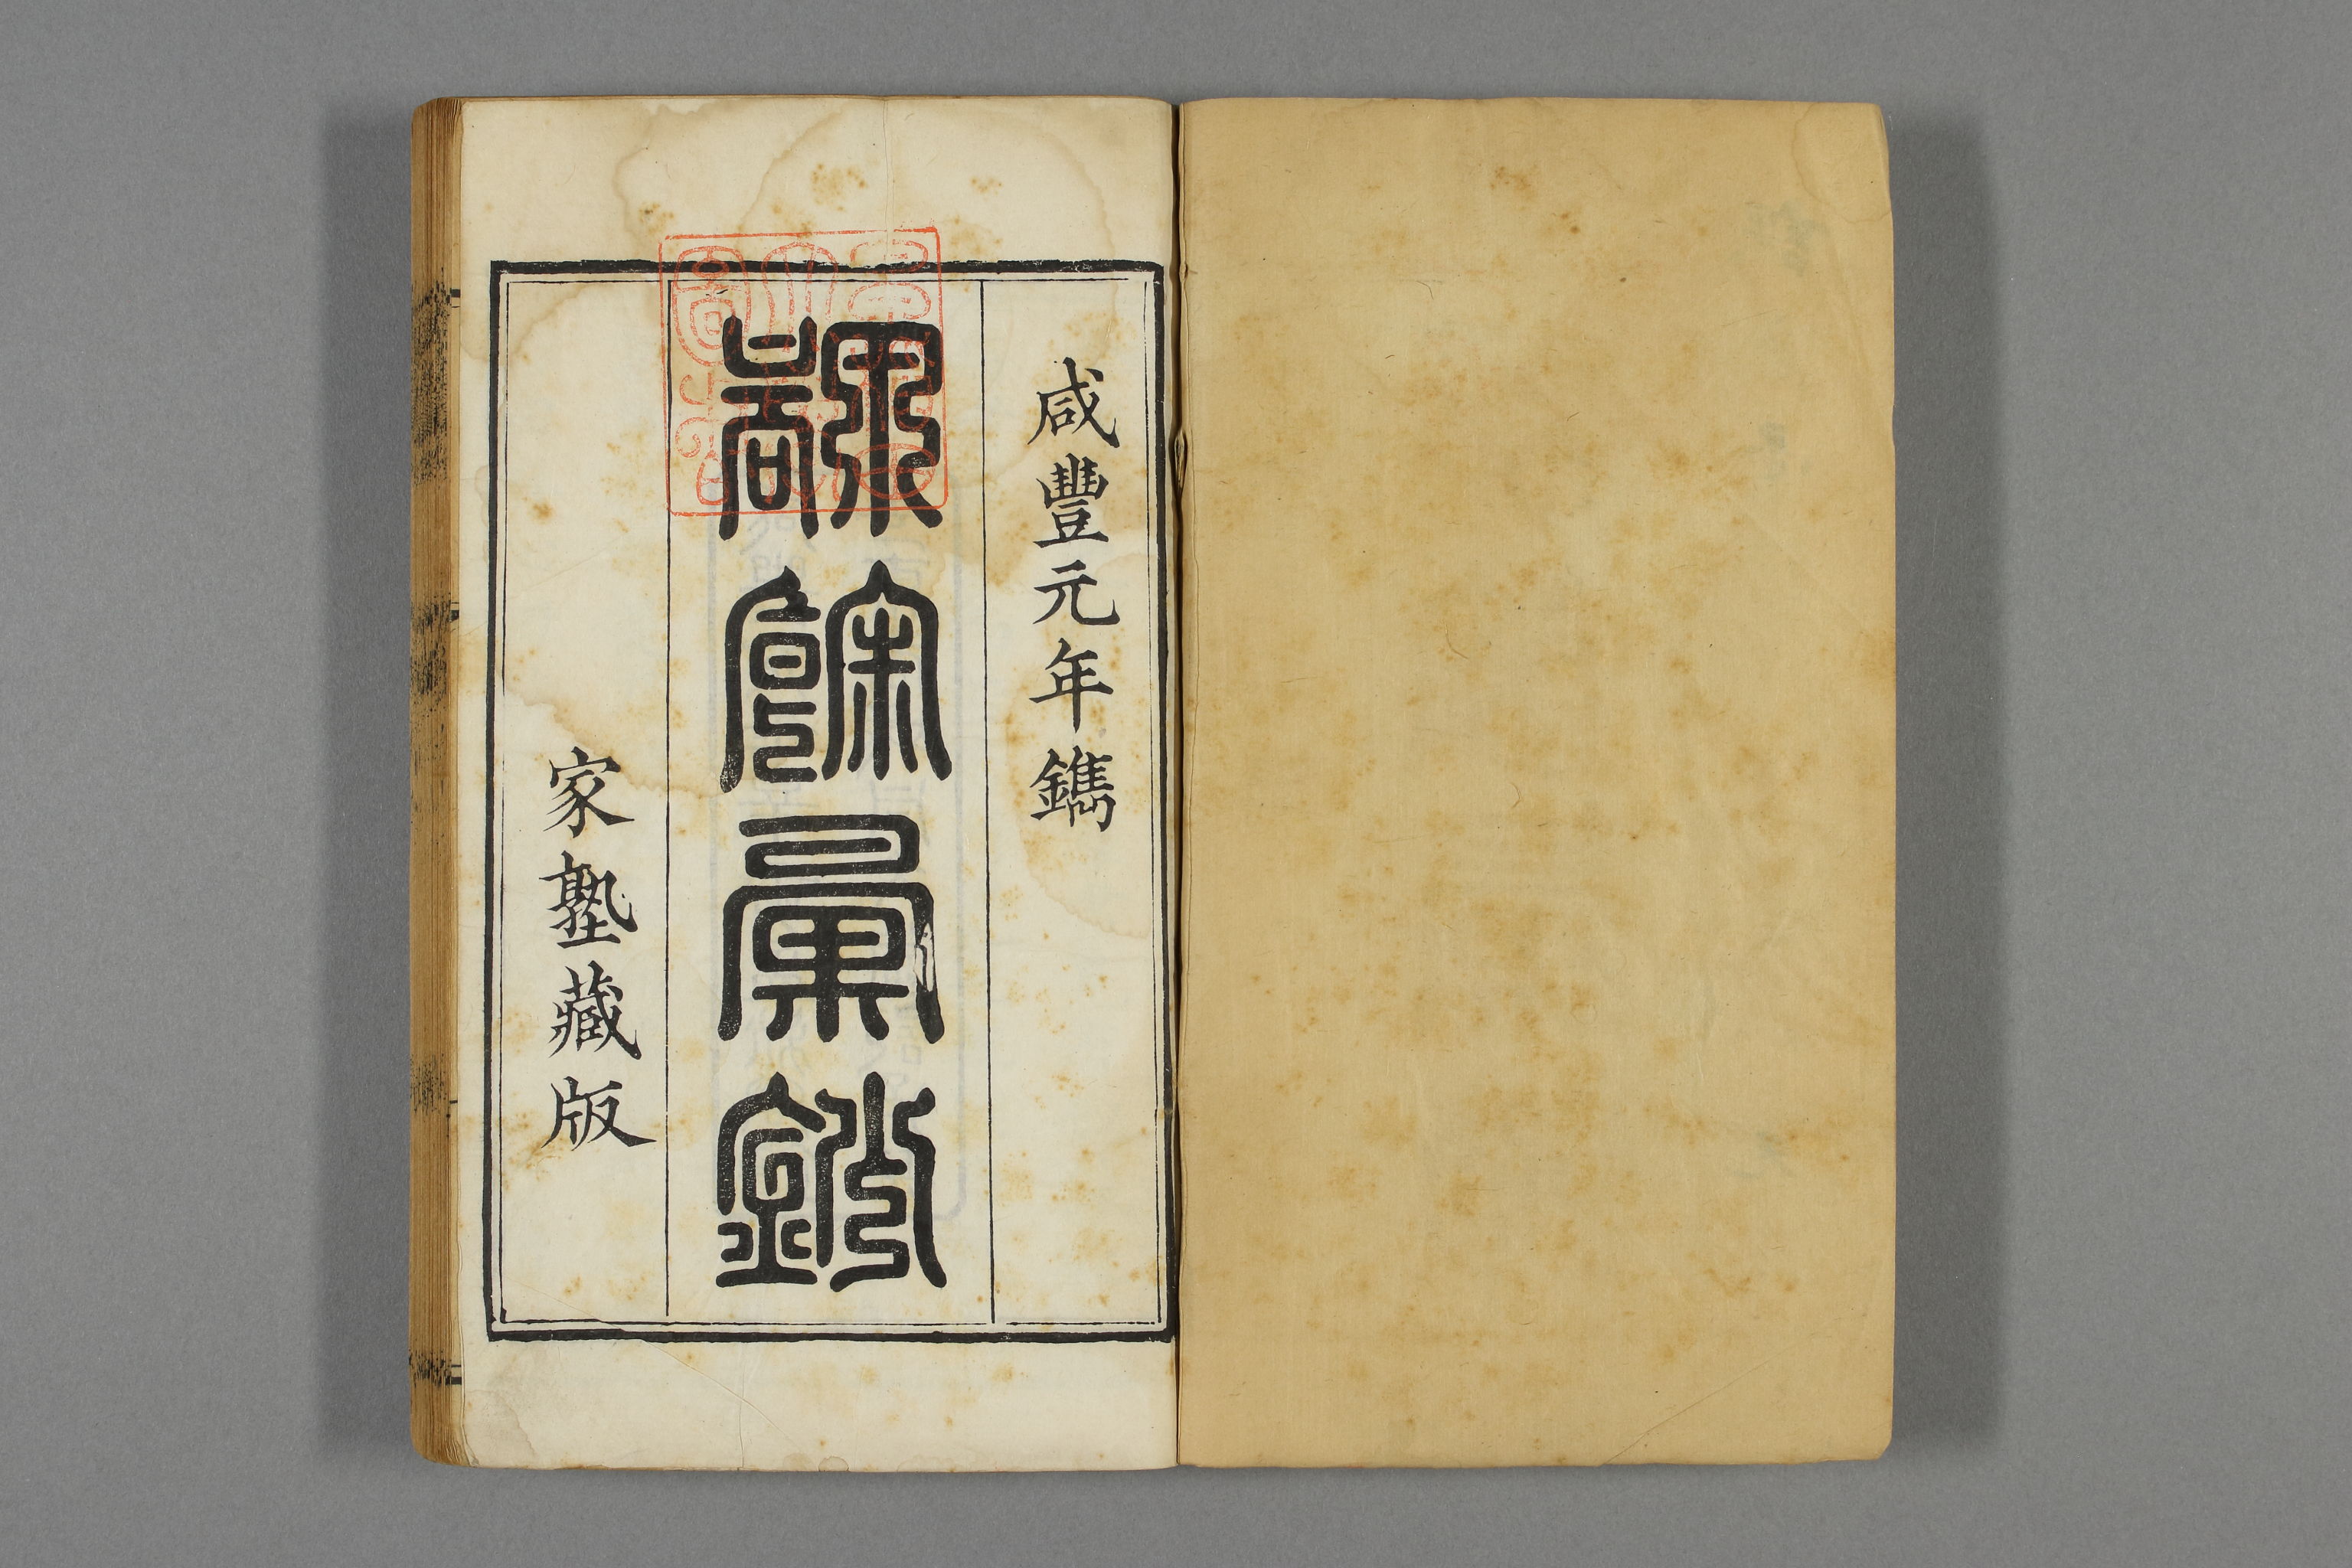 咸豐元年鐫
課餘彙鈔
家塾藏版